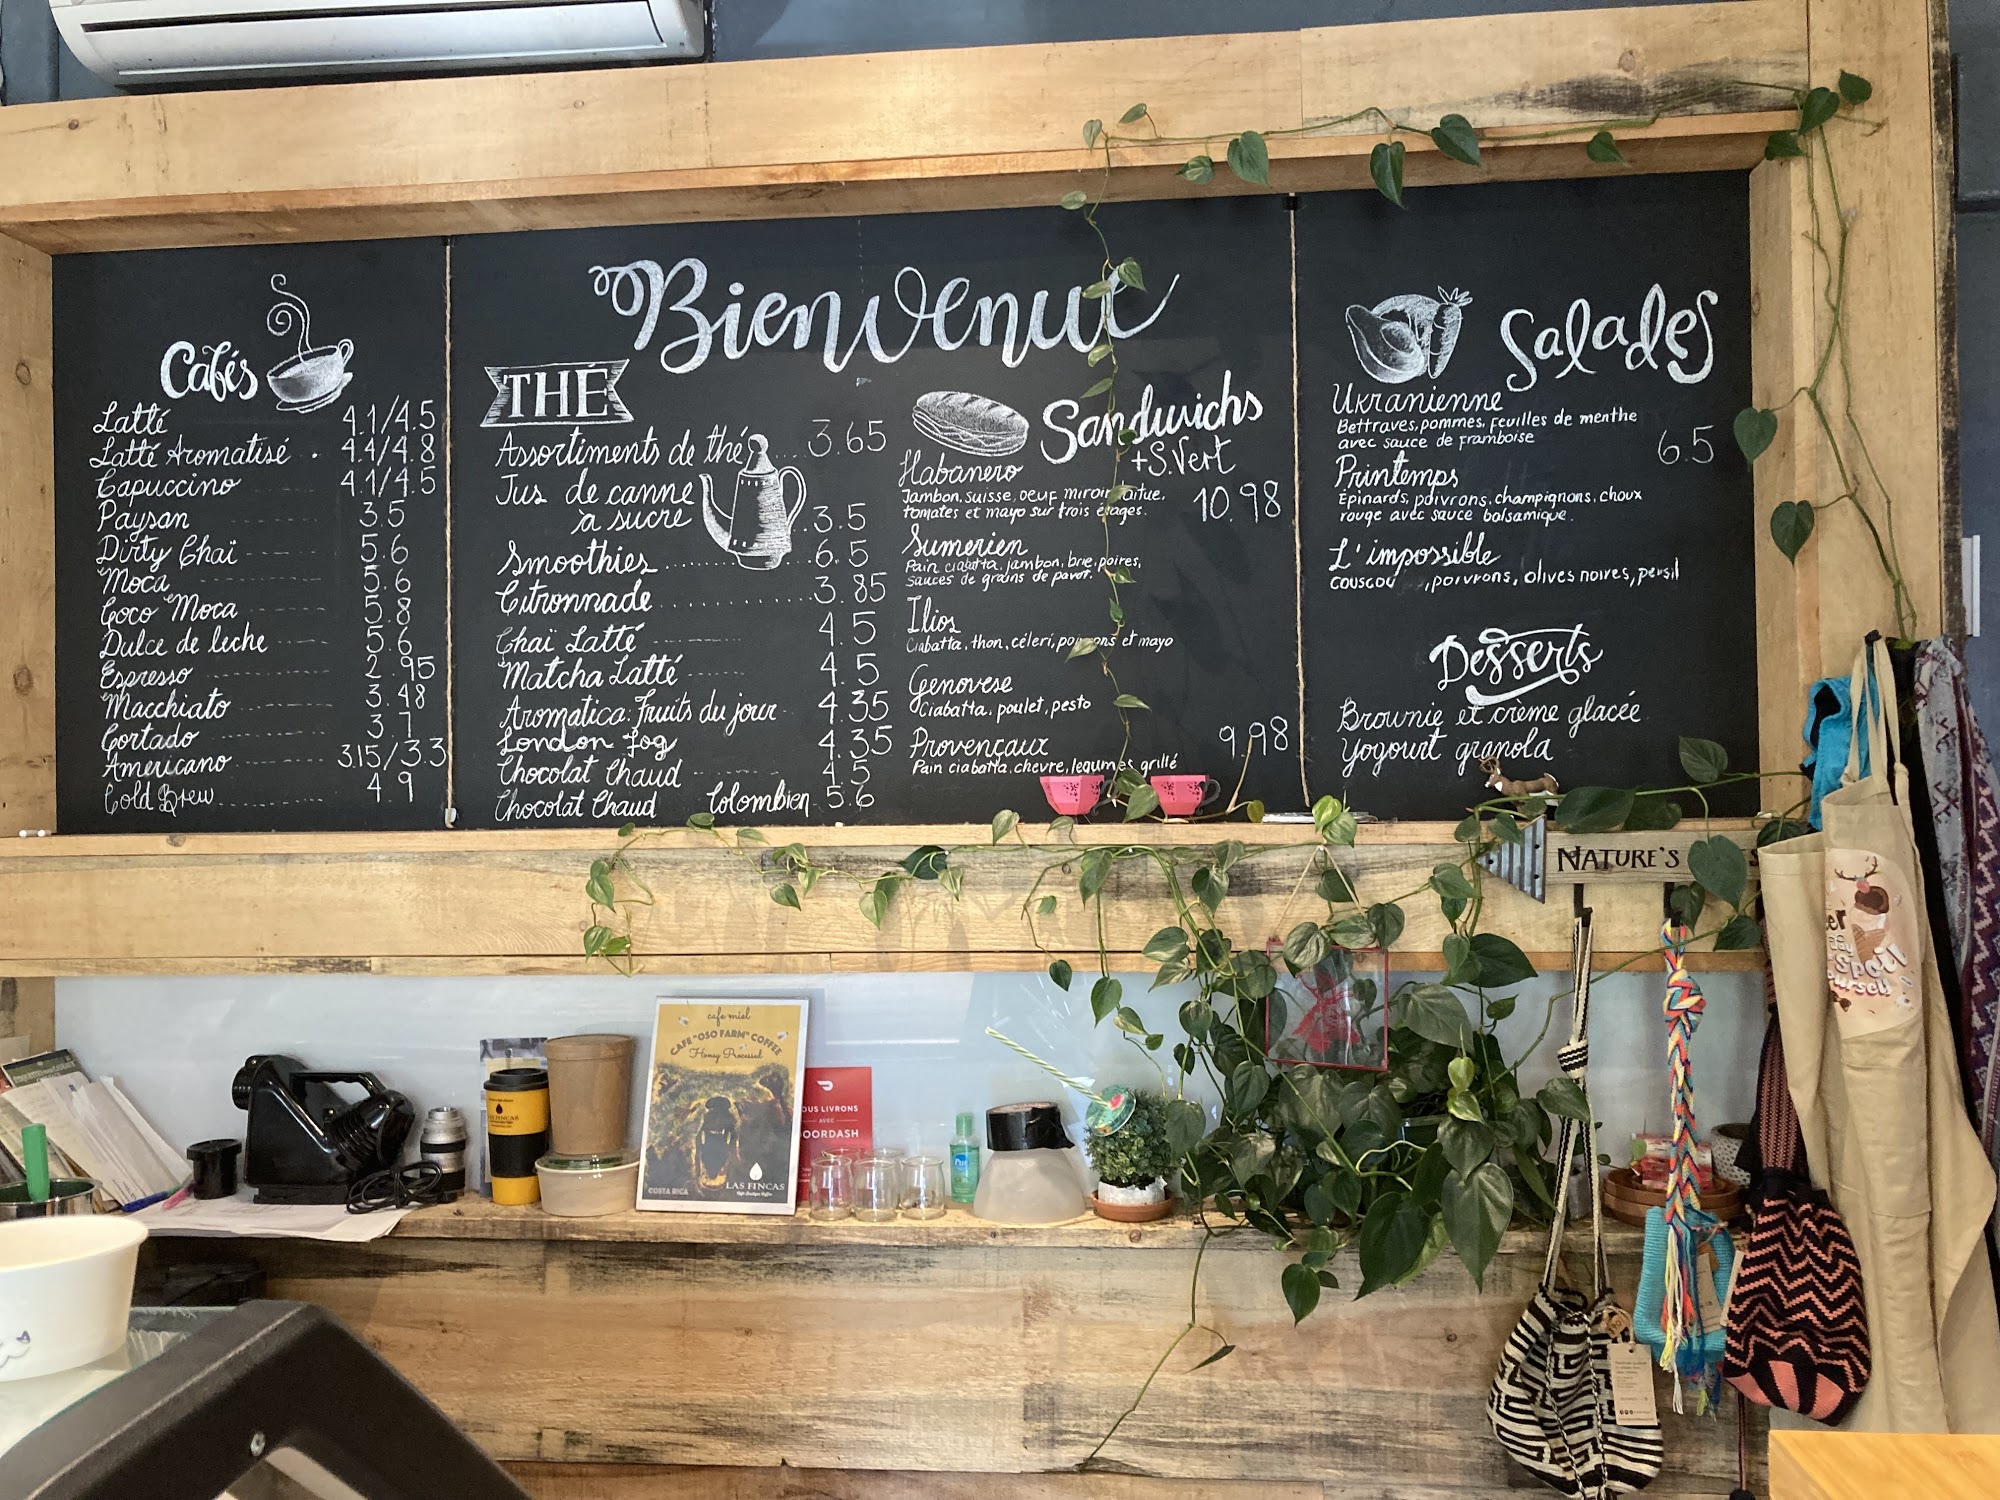 Bienvenue
Cafés
Latté 4.1/4.5
Latté Aromatisé . 4.4/4.8
Capuccino 4.1/4.5
Paysan 3.5
Dirty Chaï 5.6
Moca 5.6
Coco Moca 5.8
Dulce de leche 5.6
Espresso 2.95
Macchiato 3.48
Cortado 3.7
Americano 3.15/3.3
Cold Brew 4.9
THÉ
Assortiments de thé 3.65
Jus de canne
à sucre 3.5
Smoothies 6.5
Citronnade 3.85
Chaï Latté 4.5
Matcha Latté 4.5
Aromatica: Fruits du jour 4.35
London Fog 4.35
Chocolat Chaud 4.5
Chocolat Chaud Colombien 5.6
Sandwichs
+ S. Vert
Habanero
Jambon, suisse, oeuf miroir, laitue,
tomates et mayo sur trois étages. 10.98
Sumerien
Pain ciabatta, jambon, brie, poires,
sauces de grains de pavot.
Ilios
Ciabatta, thon, céleri, poivrons et mayo
Genovese
Ciabatta, poulet, pesto
Provençaux 9.98
Pain ciabatta, chevre, legumes grillé
Salades
Ukranienne
Bettraves, pommes, feuilles de menthe
avec sauce de framboise 6.5
Printemps
Épinards, poivrons, champignons, choux
rouge avec sauce balsamique.
L'impossible
couscou , poivrons, olives noires, persil
Desserts
Brownie et crème glacée
Yogourt granola
NATURE'S
Spoil
cafe miel
CAFE "OSO FARM" COFFEE
Honey Processed
COSTA RICA
LAS FINCAS
LAS FINCAS
LIVRONS
AVEC
DOORDASH